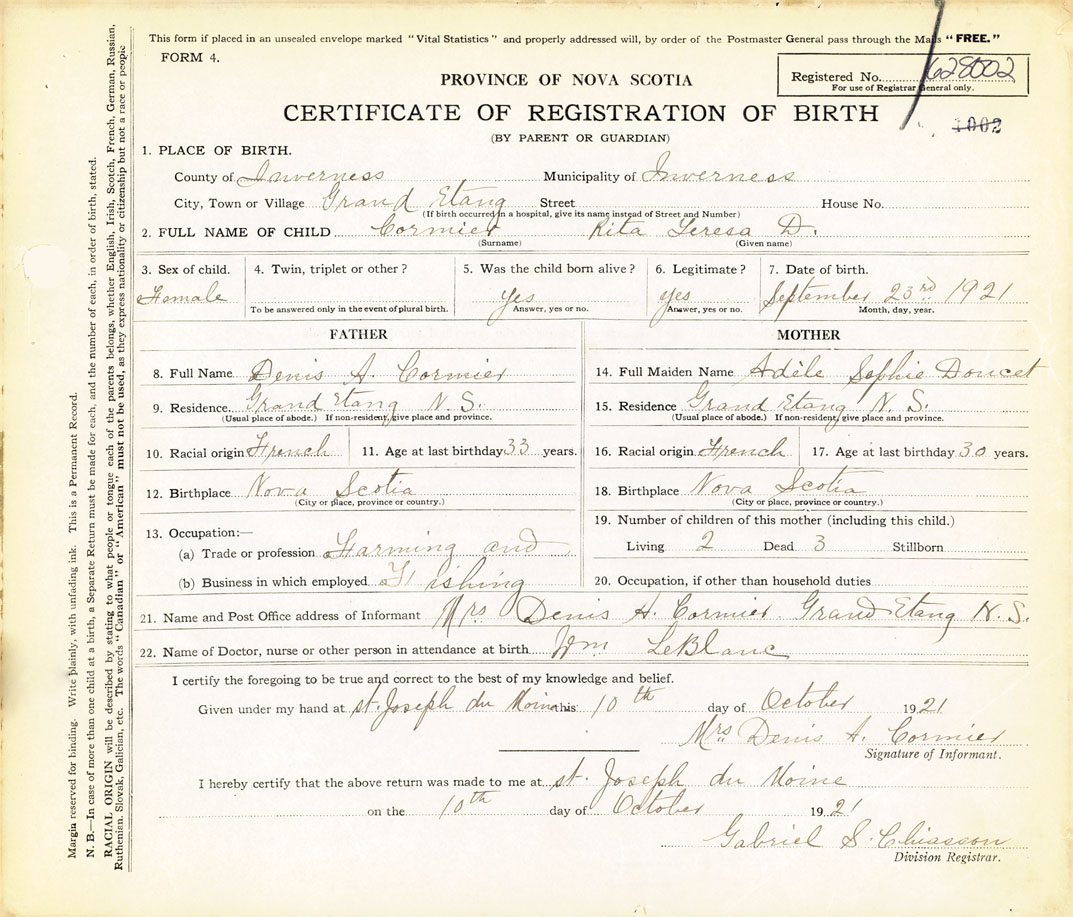 This form if placed in an unsealed envelope marked "Vital Statistics" and properly addressed will, by order of the Postmaster General pass through the Mails "FREE."
FORM 4.
Registered No. 628002
For use of Registrar General only.
1002
PROVINCE OF NOVA SCOTIA
CERTIFICATE OF REGISTRATION OF BIRTH
(BY PARENT OR GUARDIAN)
1. PLACE OF BIRTH.
County of Inverness Municipality of Inverness
City, Town or Village Grand Etang Street House No.
(If birth occurred in a hospital, give its name instead of Street and Number)
2. FULL NAME OF CHILD Cormier Rita Teresa D.
(Surname) (Given name)
3. Sex of child. 4. Twin, triplet or other? 5. Was the child born alive? 6. Legitimate? 7. Date of birth.
Female yes yes September 23rd 1921
To be answered only in the event of plural birth. Answer, yes or no. Answer, yes or no. Month, day, year.
FATHER
8. Full Name Denis A. Cormier
9. Residence. Grand Etang N. S.
(Usual place of abode.) If non-resident, give place and province.
10. Racial origin French 11. Age at last birthday 33 years.
12. Birthplace Nova Scotia
(City or place, province or country.)
13. Occupation:—
(a) Trade or profession Farming and
(b) Business in which employed Fishing
MOTHER
14. Full Maiden Name Adèle Sophie Doucet
15. Residence Grand Etang N. S.
(Usual place of abode.) If non-resident, give place and province.
16. Racial origin French 17. Age at last birthday 30 years.
18. Birthplace Nova Scotia
(City or place, province or country.)
19. Number of children of this mother (including this child.)
Living 2 Dead 3 Stillborn
20. Occupation, if other than household duties
21. Name and Post Office address of Informant Mrs Denis A. Cormier Grand Etang N. S.
22. Name of Doctor, nurse or other person in attendance at birth Wm LeBlanc
I certify the foregoing to be true and correct to the best of my knowledge and belief.
Given under my hand at st. Joseph du Moine this 10th day of October 1921
Mrs Denis A. Cormier
Signature of Informant.
I hereby certify that the above return was made to me at st. Joseph du Moine
on the 10th day of October 1921
Gabriel S. Chiasson
Division Registrar.
Margin reserved for binding. Write plainly, with unfading ink. This is a Permanent Record.
N. B.—In case of more than one child at a birth, a Separate Return must be made for each, and the number of each, in order of birth, stated.
RACIAL ORIGIN will be described by stating to what people or tongue each of the parents belongs, whether English, Irish, Scotch, French, German, Russian,
Ruthenian, Slovak, Galician, etc. The words "Canadian" or "American" must not be used, as they express nationality or citizenship but not a race or people